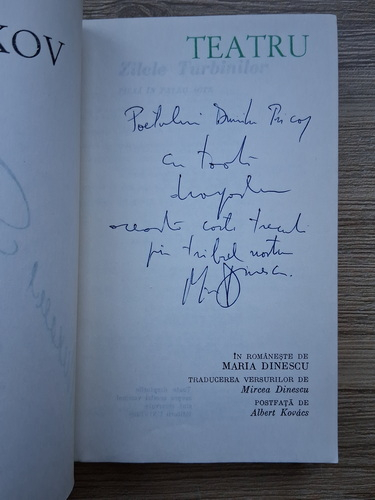 KOV
TEATRU
Zilele Turbinilor
Poetului Dumitru
cu toată
dragostea
această carte trecută
prin tribul nostru
ÎN ROMÂNEȘTE DE
MARIA DINESCU
TRADUCEREA VERSURILOR DE
Mircea Dinescu
POSTFAȚĂ DE
Albert Kovács